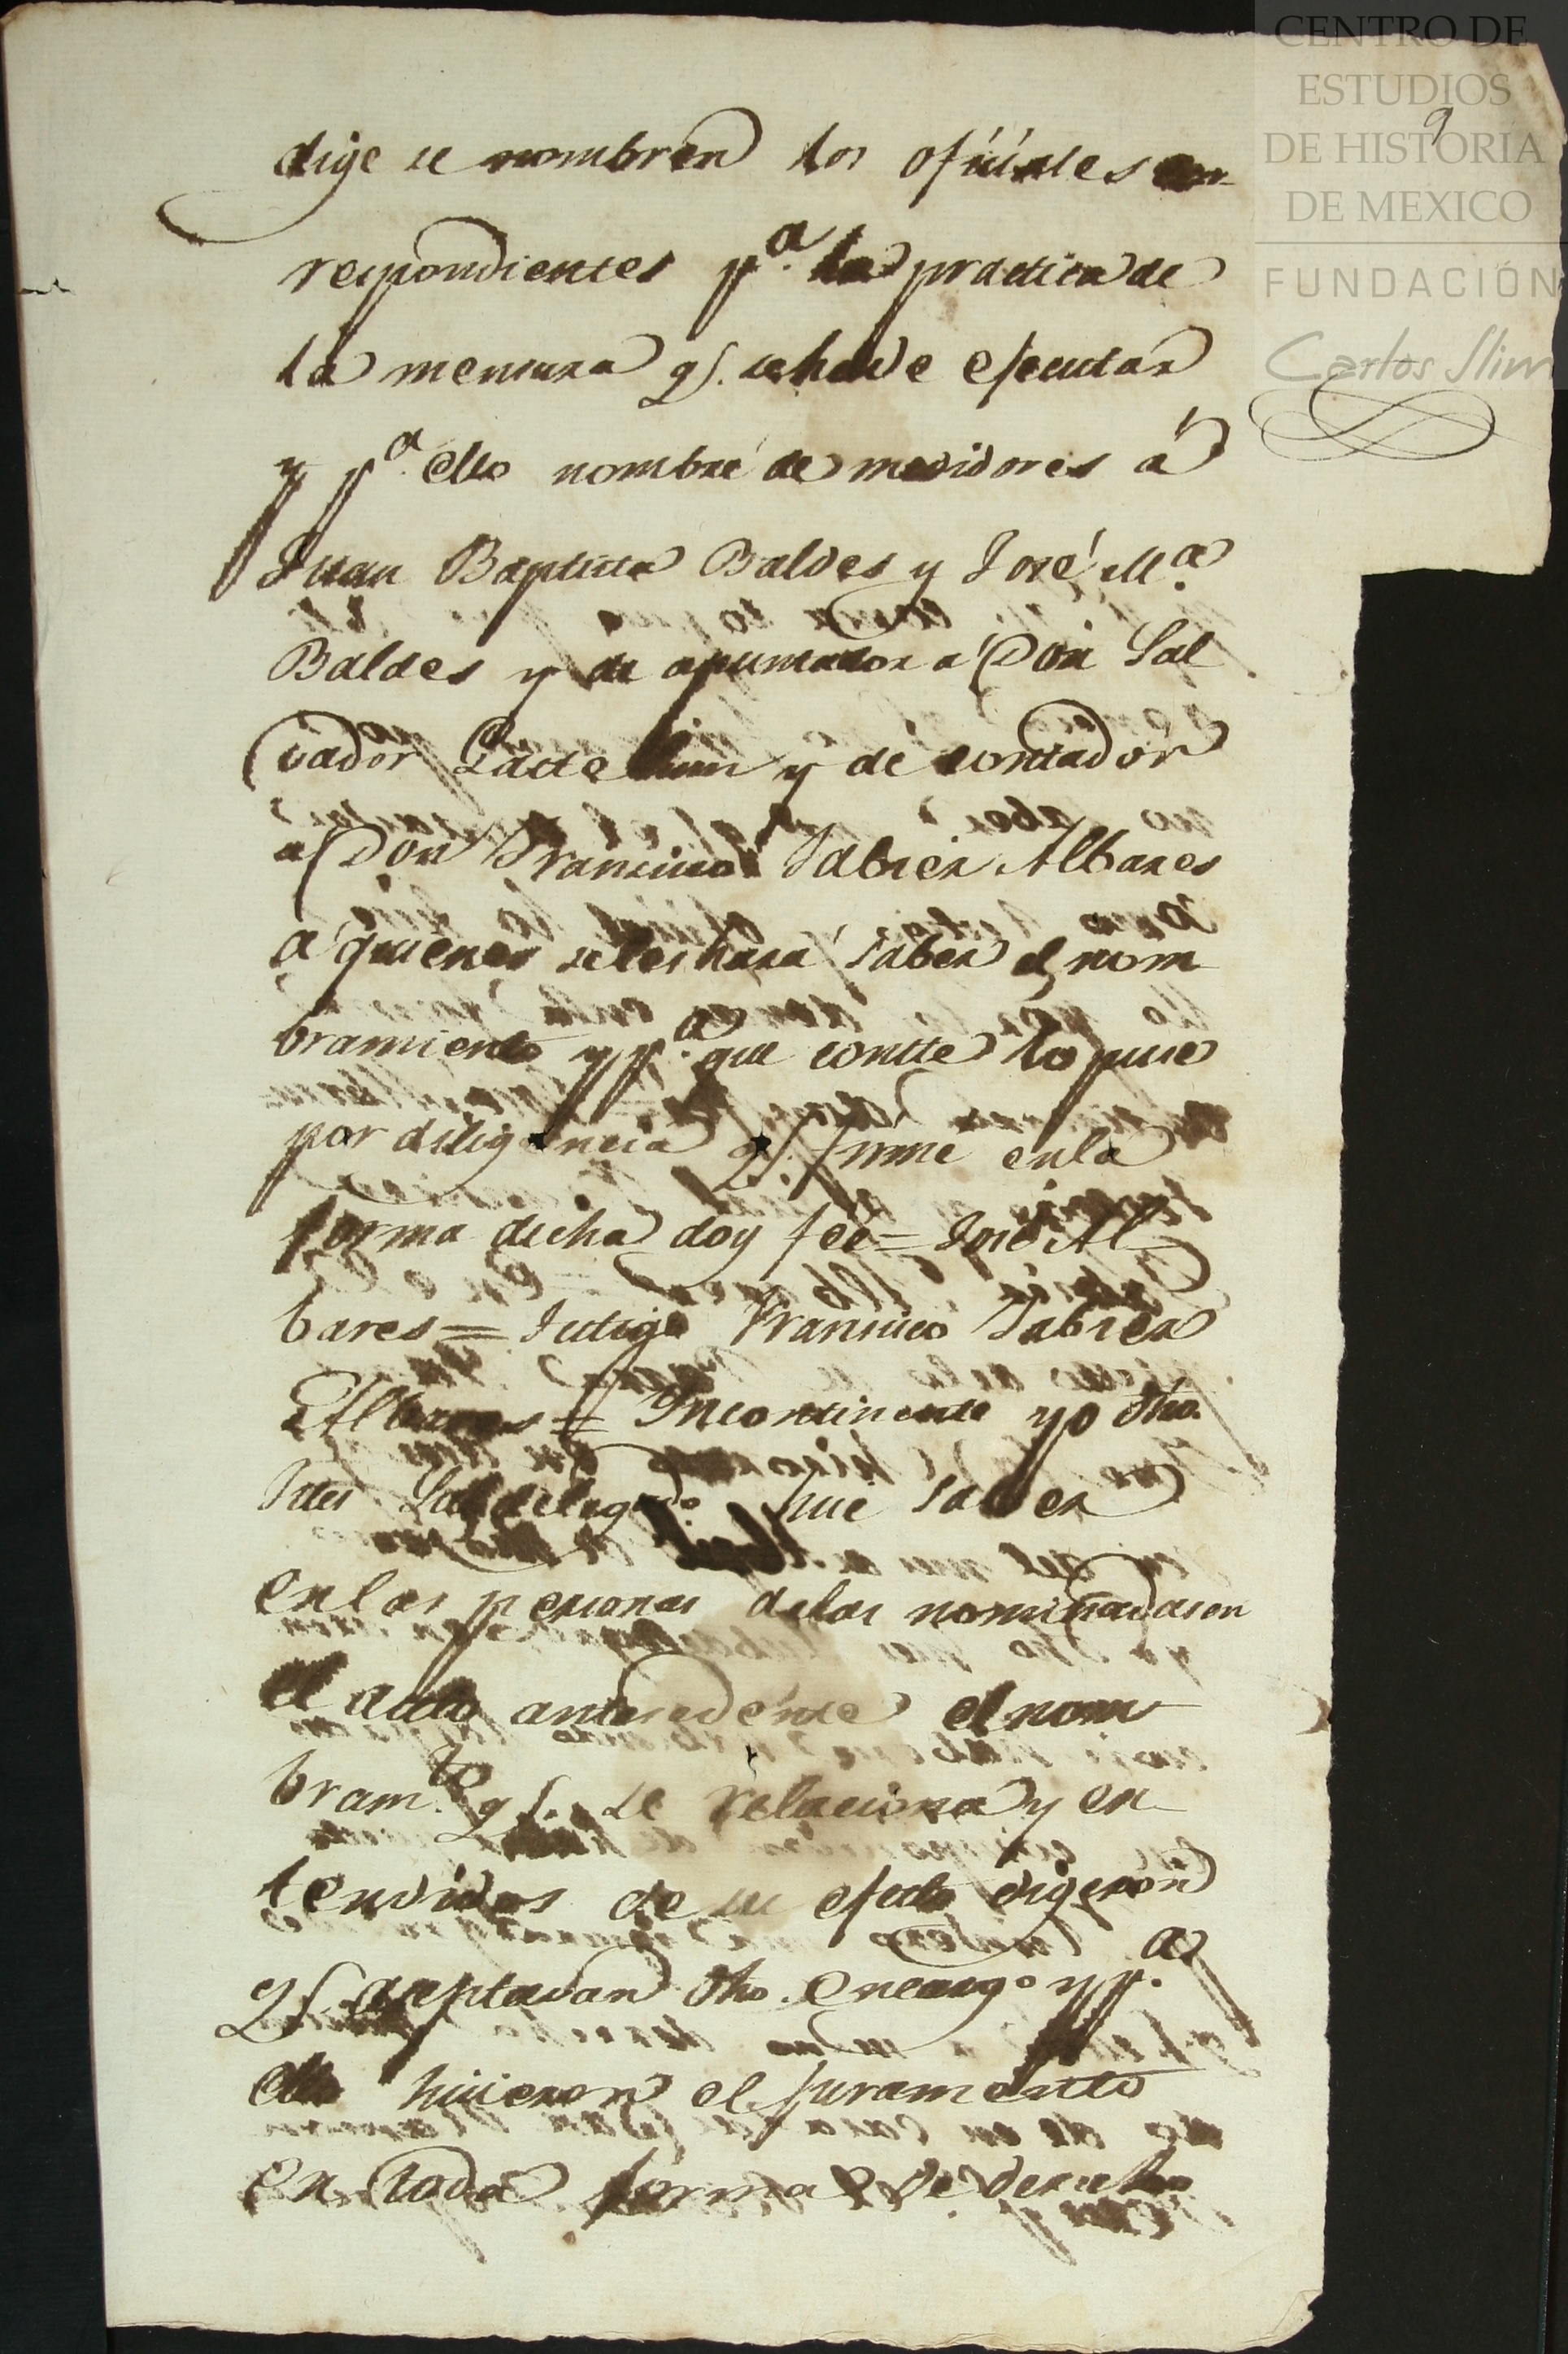 CENTRO DE
ESTUDIOS
DE HISTORIA
DE MEXICO
FUNDACIÓN
Carlos Slim
9
dige se nombren los ofiziales cor-
respondientes pa. la practica de
la mensura q. se ha de efecutar
y pa. ello nombré de medidores á
Juan Baptista Baldes y José Ma.
Baldes y de apuntador a Don Sal
vador Castellum y de contador
a Don Francisco Jabier Albares
a quienes seles hará saber el nom
bramiento y pa. que conste lo puse
por diligencia q. firmé enla
forma dicha doy feé = José Al-
bares = Testigo Francisco Jabier
Albares = Yncontinente yo dho.
Jues Subdelegdo. hise saber
enlas personas delos nominadas en
el auto antesedente el nom-
bramto. q. se relaciona y en-
tendidos de su efecto digeron
q. aceptavan dho. encargo y pa.
ello hisieron el juramento
en toda forma de derecho